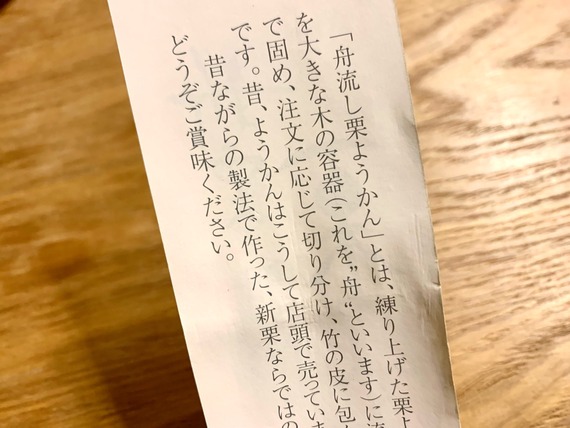 「舟流し栗ようかん」とは、練り上げた栗よ
を大きな木の容器(これを”舟“といいます)に流
で固め、注文に応じて切り分け、竹の皮に包
です。昔、ようかんはこうして店頭で売っていま
昔ながらの製法で作った、新栗ならではの
どうぞご賞味ください。